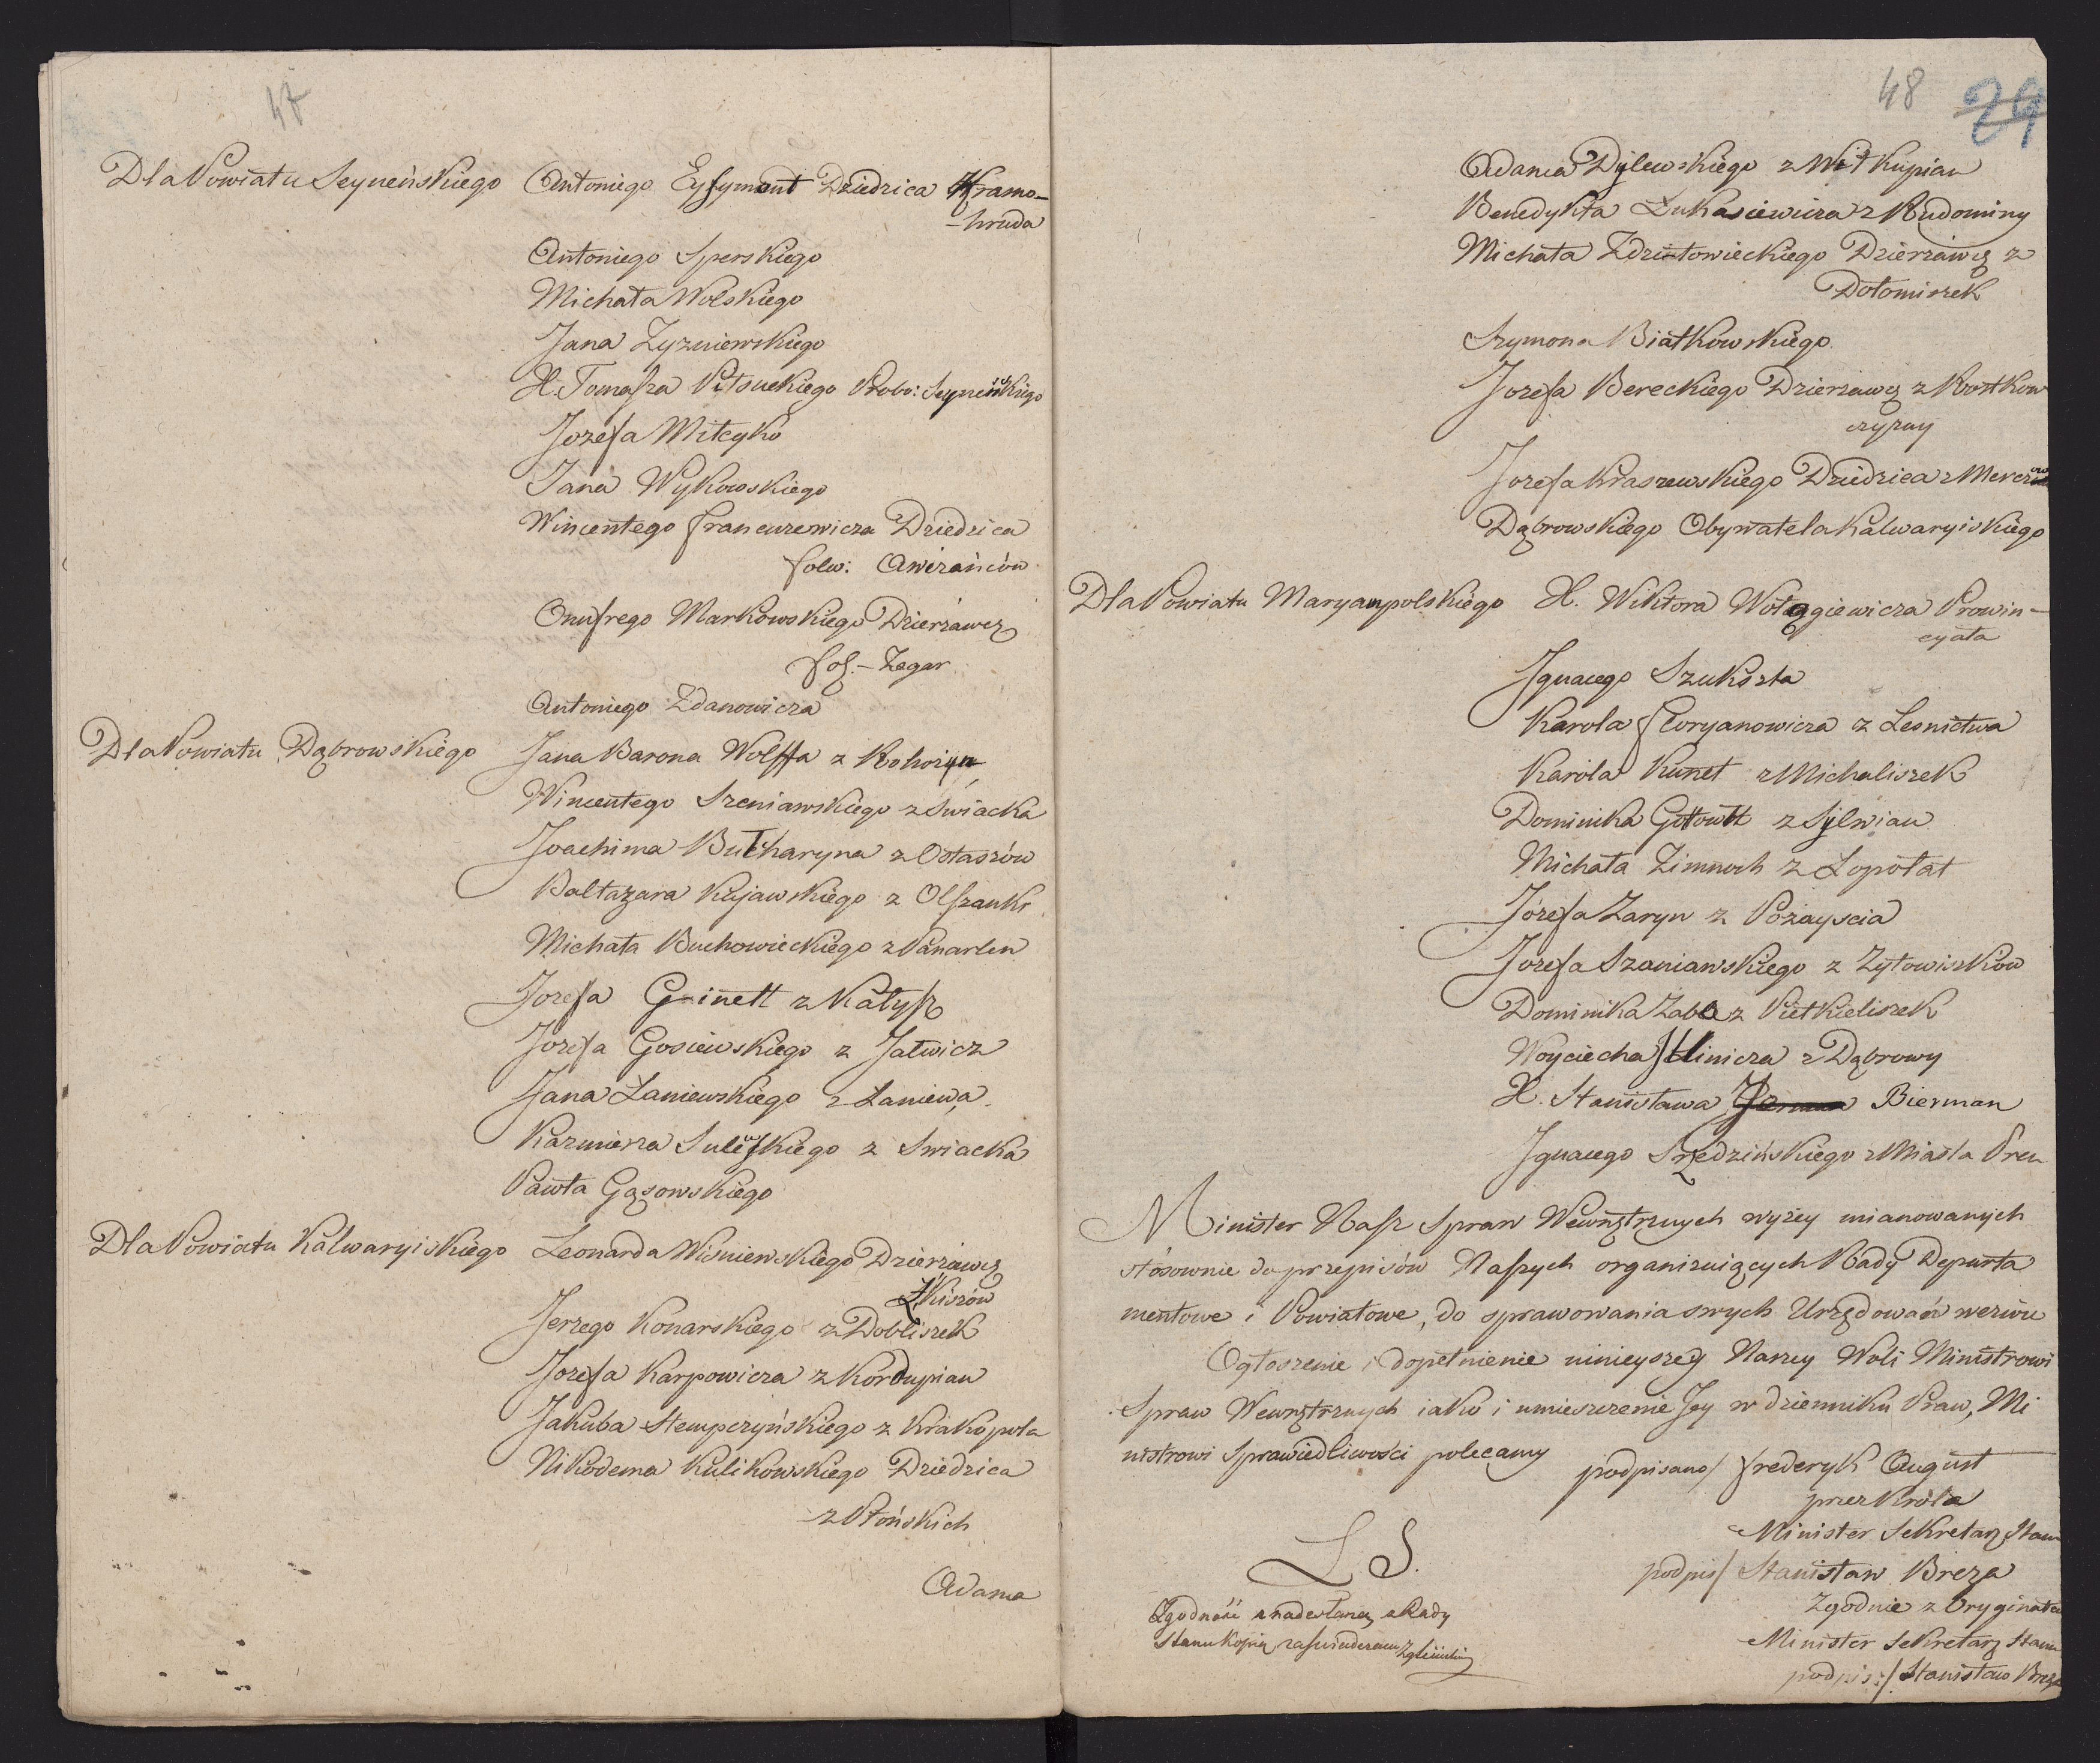 47
Dla Powiatu Seyneńskiego Antoniego Eysymont Dziedzica Kramo-
-hruda
Antoniego Sperskiego
Michała Wolskiego
Jana Zyzniewskiego
X. Tomasza Probo: Seyneńskiego
Jozefa Miłeyko
Jana Wykowskiego
Wincentego Francuzewicza Dziedzica
folw:
Onufrego Markowskiego Dzierżawcę
fol. Zegar
Antoniego Zdanowicza
Dla Powiatu Dąbrowskiego Jana Barona Wolffa z Rohożyn
Wincentego Szeniawskiego z Swiacka
Joachima Bułharyna z Ostaszów
Baltazara Kujawskiego z Olszanki
Michała Buchowieckiego z Panarlen
Jozefa z
Jozefa Gosiewskiego z Jałwicz
Jana Łaniewskiego z Łaniewa
Kazmierza z Swiacka
Pawła Gąsowskiego
Dla Powiatu Kalwaryiskiego Leonarda Wiśniewskiego Dzierżawcę
Jerzego Konarskiego z Dobliszek
Jozefa Karpowicza z Kordupian
Jakuba Stempczyńskiego z Krakopola
Nikodema Kulikowskiego Dziedzica
z Płońskich
Adama
48 29
Adama Dylewskiego z Witkupian
Benedykta Łukasiewicza z Rudominy
Michała Zdzitowieckiego Dzierzawcę z
Dołomiszek
Szymona Białkowskiego
Jozefa Bereckiego Dzierzawcę z Rostkow
czyzny
Jozefa Kraszewskiego Dziedzica z
Dąbrowskiego Obywatela Kalwaryiskiego
Dla Powiatu Maryampolskiego X. Wiktora Wołągiewicza Prowin-
cyała
Ignacego Szukszta
Karola Floryanowicza z Lesnictwa
Karola Kunet z Michaliszek
Dominika Gołowtt z Sylwian
Michała Zimnoch z Łopołat
Józefa Zaryn z Pożayscia
Jozefa Szaniawskiego z Zytowiszków
Dominika Zabe z Pietkieliszek
Woyciecha Jllinicza z Dąbrowy
X. Stanisława Bierman
Ignacego Szędzińskiego z Miasta Pren
Minister Nasz Spraw Wewnętrznych wyżey mianowanych
stósownie do przepisów Naszych organizuiących Rady Departa
mentowe i Powiatowe, do sprawowania swych Urzędowań wezwie
Ogłoszenie i dopełnienie ninieyszey Naszey Woli Ministrowi
Spraw Wewnętrznych iako i umieszczenie Jey w dzienniku Praw, Mi
nistrowi Sprawiedliwości polecamy
podpisano/ Frederyk August
przez Króla
Minister Sekretarz Stanu
podpis/ Stanisław Breza
L S.
Zgodnie z Oryginałem
Minister Sekretarz Stanu
podpis:/ Stanisław Breza
Zgodność z nadesłaną z Rady
Stanu Kopią zaświadczam